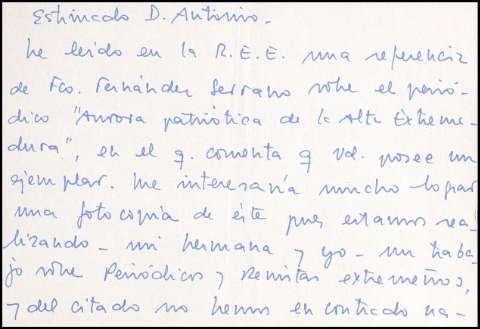 Estimado D. Antonio.
he leido en la R.E.E. una referencia
de Fco. Fernández Serrano sobre el perió-
dico "Aurora patriótica de la Alta Extrema-
dura", en el q. comenta q Vd. posee un
ejemplar. Me interesaría mucho lograr
una fotocopia de éste pues estamos rea-
lizando - mi hermana y yo - un traba-
jo sobre Periódicos y Revistas extremeños,
y del citado no hemos encontrado na-